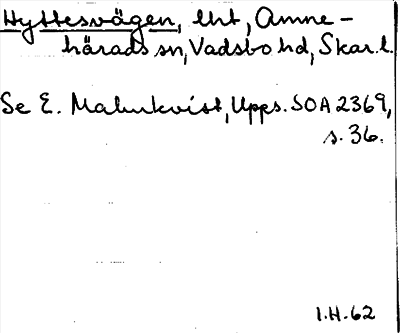 Hyttesvägen, tht, Amne-
härads sn, Vadsbo hd, Skar. l.
Se E. Malmkvist, Upps. SOA 2369,
s. 36.
I.H. 62